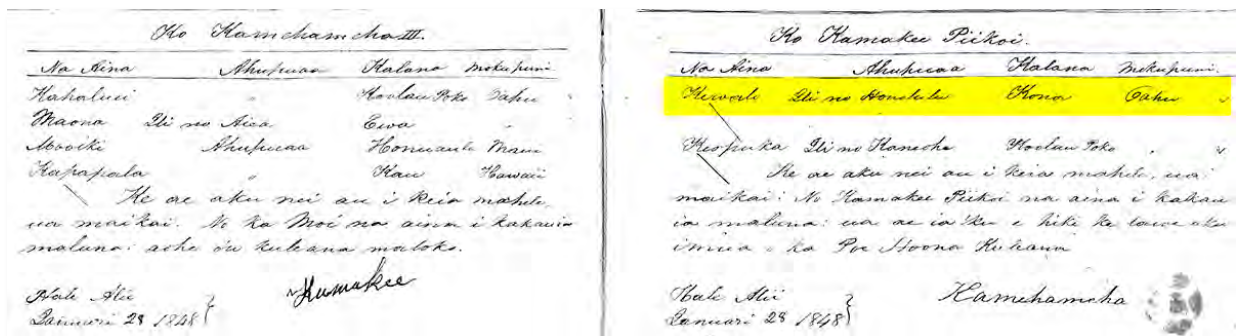 Ko Kamehameha III.
Na Aina Ahupuaa Kalana Mokupuni
Kahaluu " Koolau Poko Oahu
Maona Ili no Aiea Ewa "
Mooiki Ahupuaa Honuaula Maui
Kapapala " Kau Hawaii
Ke ae aku nei au i keia mahele,
ua maikai. No ka Moi na aina i kakauia
maluna: aohe o'u kuleana maloko.
Kamakee
Hale Alii
Ianuari 28 1848
Ko Kamakee Piikoi.
Na Aina Ahupuaa Kalana Mokupuni.
Kewalo Ili no Honolulu Kona Oahu "
Keopuka Ili no Kaneohe Koolau Poko " "
Ke ae aku nei au i keia mahele, ua
maikai: No Kamakee Piikoi na aina i kakau
ia maluna: ua ae ia'ku e hiki ke lawe aku
imua o ka Poe Hoona Kuleana
Kamehameha
Hale Alii
Ianuari 28 1848